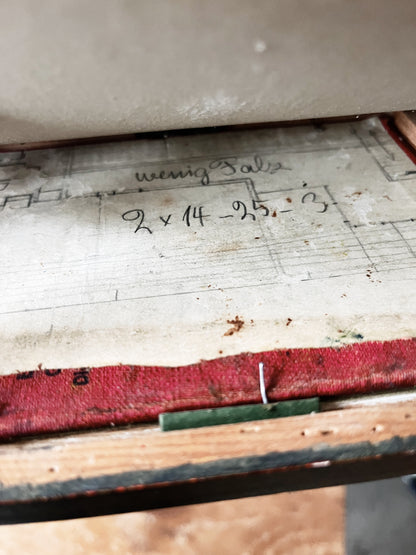 wenig Falz
2 x 14 - 25 - 3